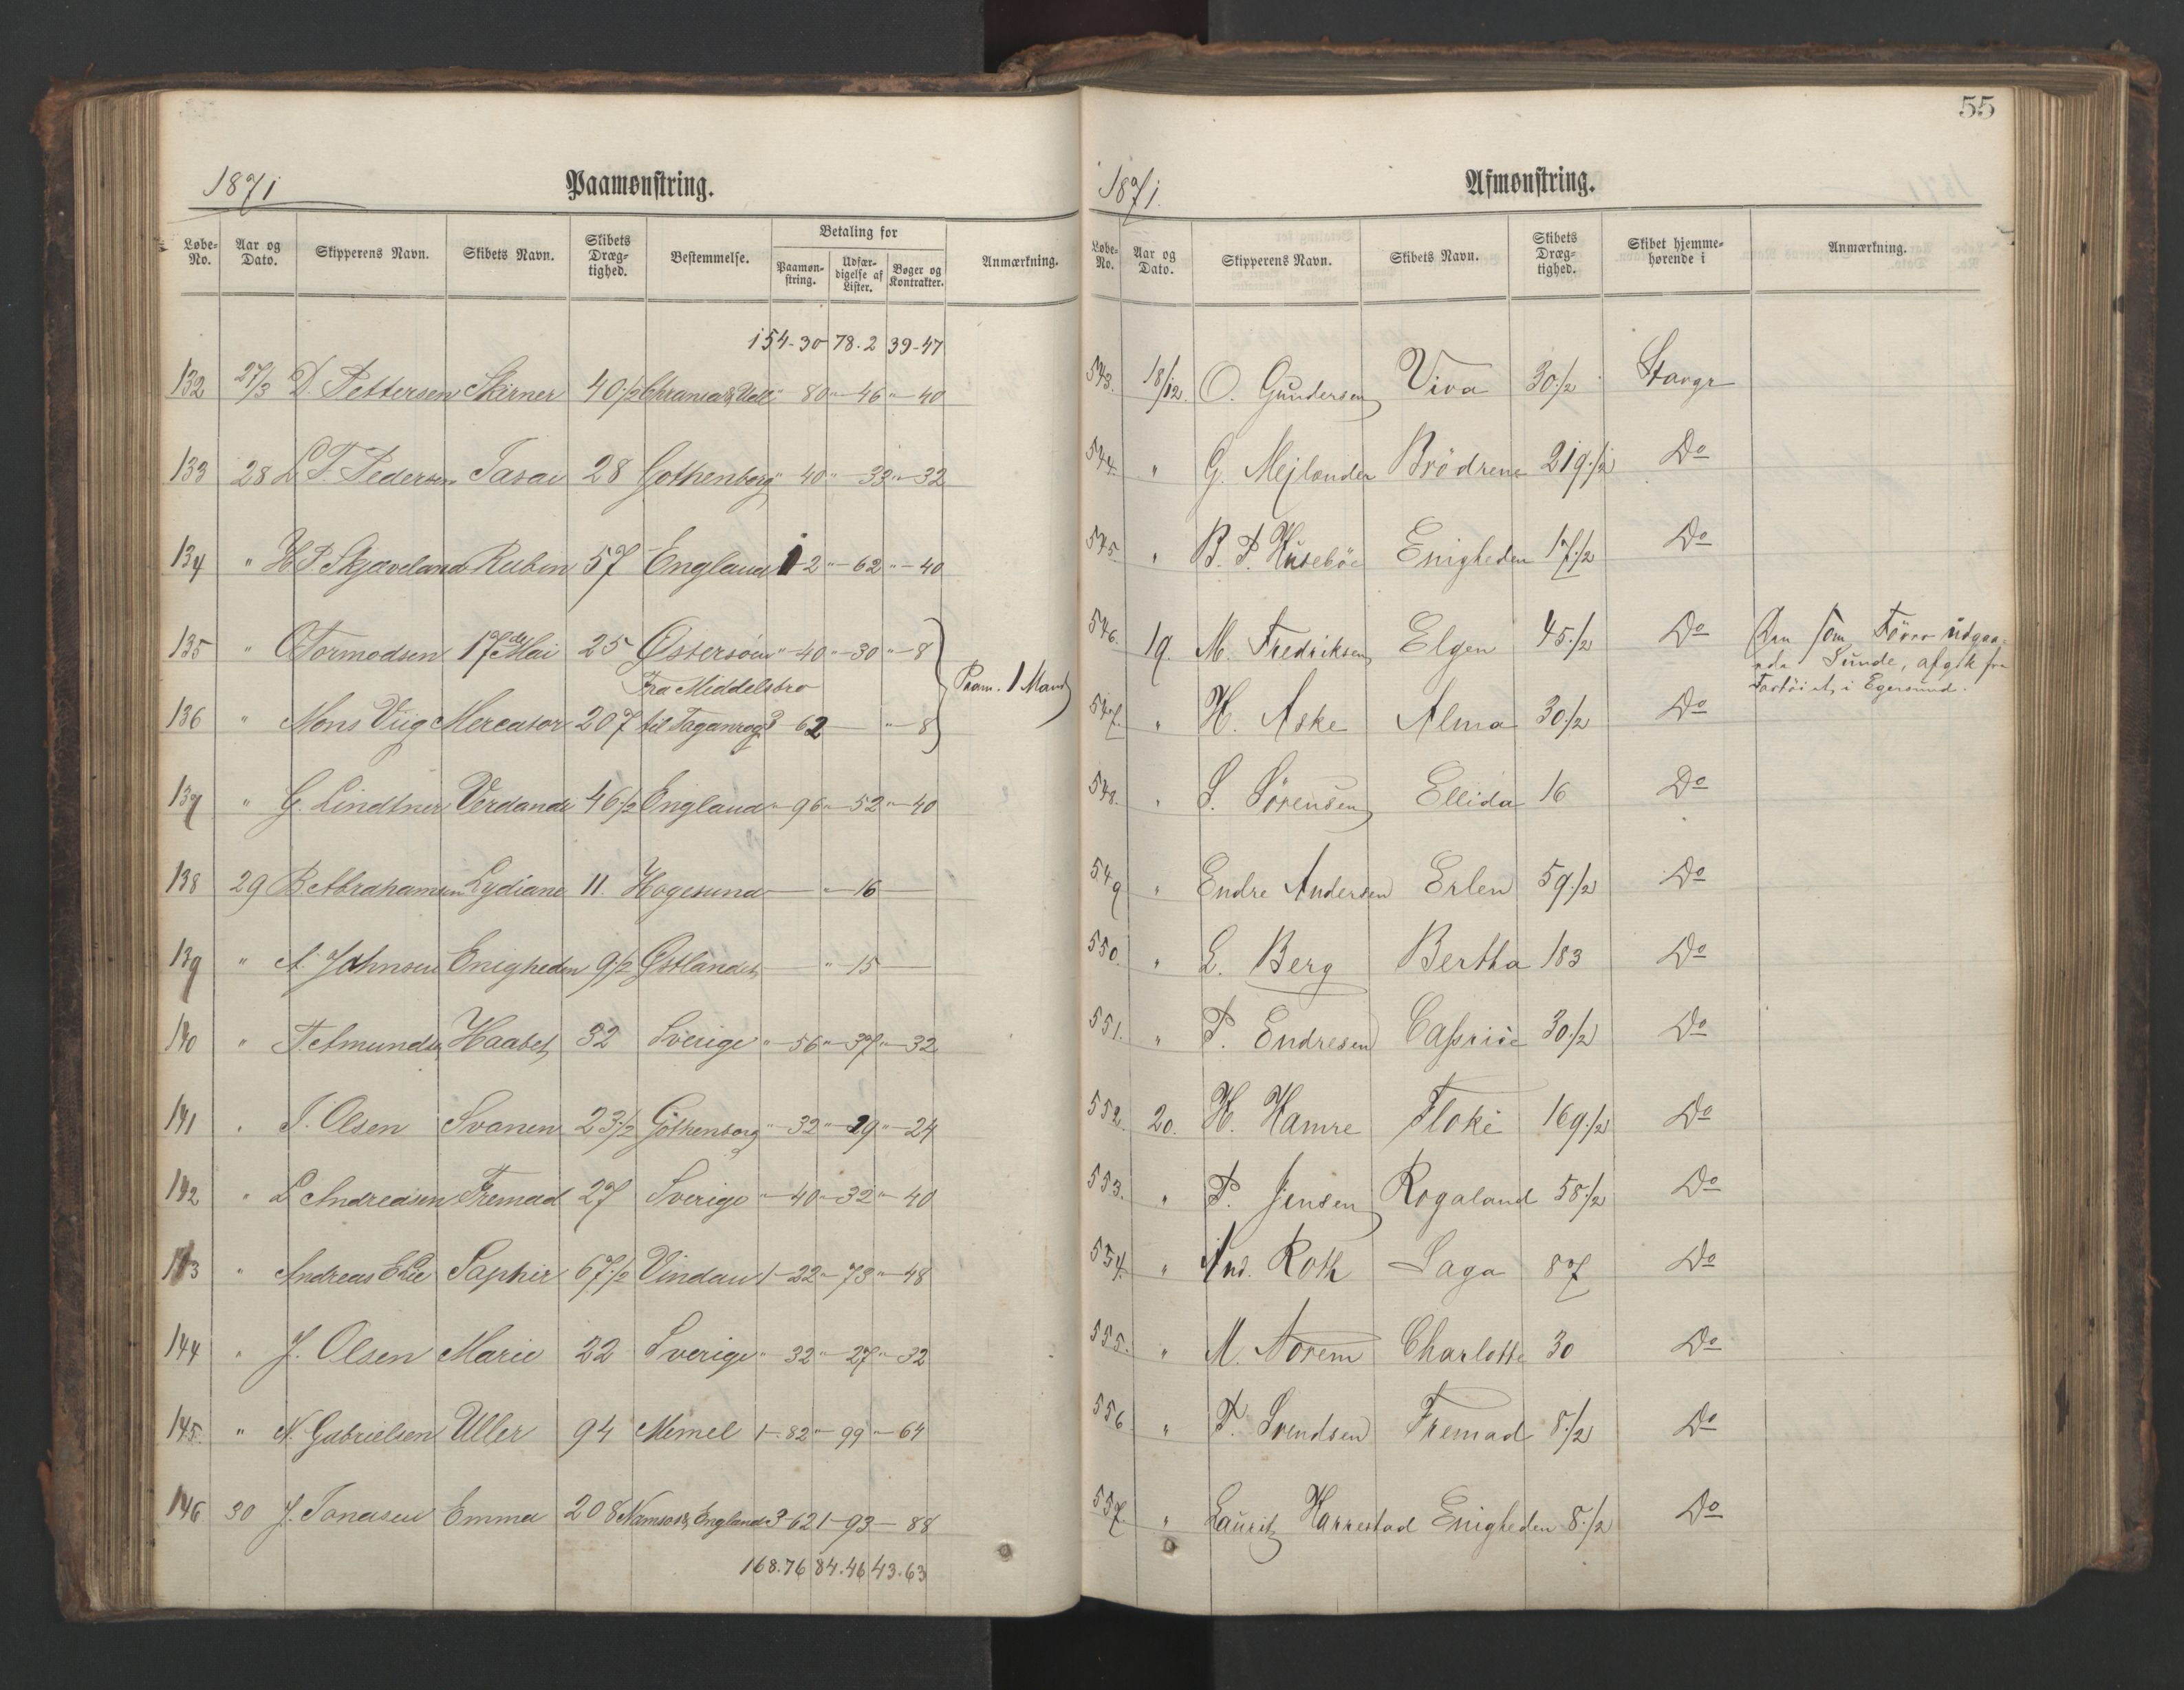 1871
Paamønstring.
Løbe-No.	Aar og Dato.	Skipperens Navn.	Skibets Navn.	Skibets Drægtighed.	Bestemmelse.	Betaling for	Paamønstring.	Udfærdigelse af Lister.	Bøger og Kontrakter.	Anmærkning.
154-30 78.2 39-47
132 27/3 D. Pettersen Skirner 40 1/2 " 80 " 46 " 40
133 28 L T. Pedersen 28 Gothenborg " 40 " 33 " 32
134 " H P Skjæveland Rubin 57 England 1-2 " 62 " 40
135 " O Tormodsen 17de Mai 25 Østersøen " 40 " 30 " 8
Fra Middelsbro Paam. 1 Mand
136 " Mons Viig Mercator 207 til Taganrog 3 62 — " 8
137 " G. Lindtner Verdande 46 1/2 England " 96 " 52 " 40
138 29 B Abrahamsen Lydiane 11. Hogesund — " 16 —
139 " A. Johnsen Enigheden 9 1/2 Østlandet — " 15 —
140 " T. Amundsen Haabet 32 Sverige " 56 " 37 " 32
141 " S. Olsen Svanen 23 1/2 Gothenborg " 32 " 29 " 24
142 " L Andreasen Fremad 27 Sverige " 40 " 32 " 40
143 " Andreas Saphir 67 1/2 Vindau 1-22 " 73 " 48
144 " J. Olsen Marie 22 Sverige " 32 " 27 " 32
145. " N. Gabrielsen Uller 94 Memel 1-82 " 99 " 64
146 30 J. Jonasen Emma 208 Namsos & England 3-62 1-93 — 88
168.76 84.46 43.63
55
1871.
Afmønstring.
Løbe-No.	Aar og Dato.	Skipperens Navn.	Skibets Navn.	Skibets Drægtighed.	Skibet hjemmehørende i	Anmærkning.
543. 18/12. O. Gundersen Viva 30 1/2 Stavgr
544. " G. Mejlander Brödrene 219 1/2 Do
545. " B. T. Huseböe Enigheden 17 1/2 Do
546. 19. M. Fredriksen Elgen 45 1/2 Do Den som Förer udgaa-
ende Sunde, afgik fra
Fartöiet, i Egersund.
547. " H. Aske Alma 30 1/2 Do
548. " S. Sörensen Ellida 16 Do
549 " Endre Andersen Erlen 59 1/2 Do
550. " L. Berg Bertha 183 Do
551. " T. Endresen 30 1/2 Do
552. 20. H. Hamre Floke 169 1/2 Do
553. " T. Jensen Rogaland 58 1/2 Do
554. " And. Roth Saga 87 Do
555. " M. Norem Charlotte 30 Do
556 " T. Svendsen Fremad 8 1/2 Do
557. " Lauritz Harrestad Enigheden 8 1/2 Do